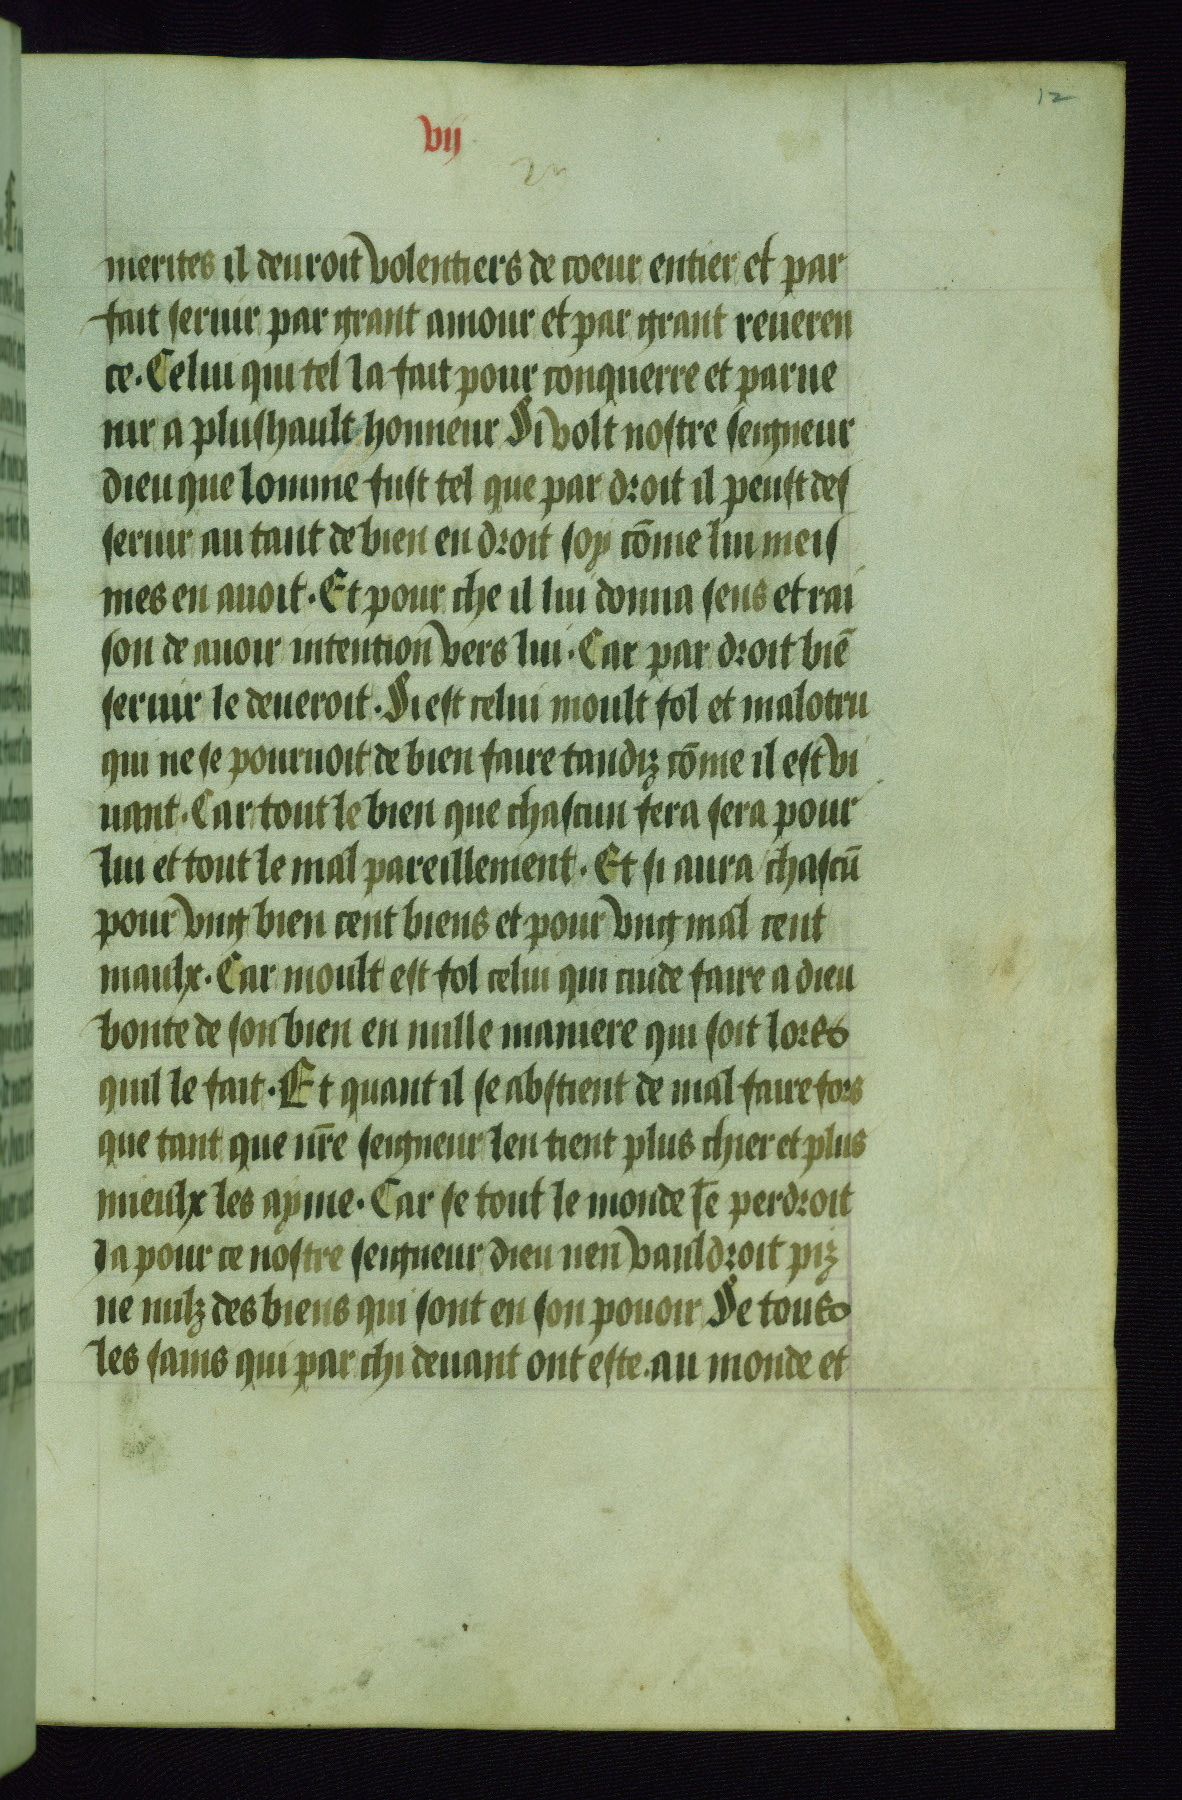 12
vij
merites il deuroit volentiers de coeur entier et par
fait seruir par grant amour et par grant reueren
ce. Celui qui tel la fait pour conquerre et parue
nir a plushault honneur Si volt nostre seigneur
dieu que lomme fust tel que par droit il peust des
seruir au tant de bien en droit soy cōme lui meis
mes en auoit. Et pour che il lui donna sens et rai
son de auoir intention vers lui. Car par droit biē
seruir le deueroit. Si est celui moult fol et malotru
qui ne se pouruoit de bien faire tandiz cōme il est vi
uant. Car tout le bien que chascun fera sera pour
lui et tout le mal pareillement. Et si aura chascū
pour vng bien cent biens et pour vng mal cent
maulx. Car moult est fol celui qui cuide faire a dieu
bonte de son bien en nulle maniere qui soit lores
quil le fait. Et quant il se abstient de mal faire fors
que tant que nr̄e seigneur len tient plus chier et plus
mieulx les ayme. Car se tout le monde se perdroit
Ja pour ce nostre seigneur dieu nen vauldroit piz
ne nulz des biens qui sont en son pouoir Se tous
les sains qui par chi deuant ont este. au monde et